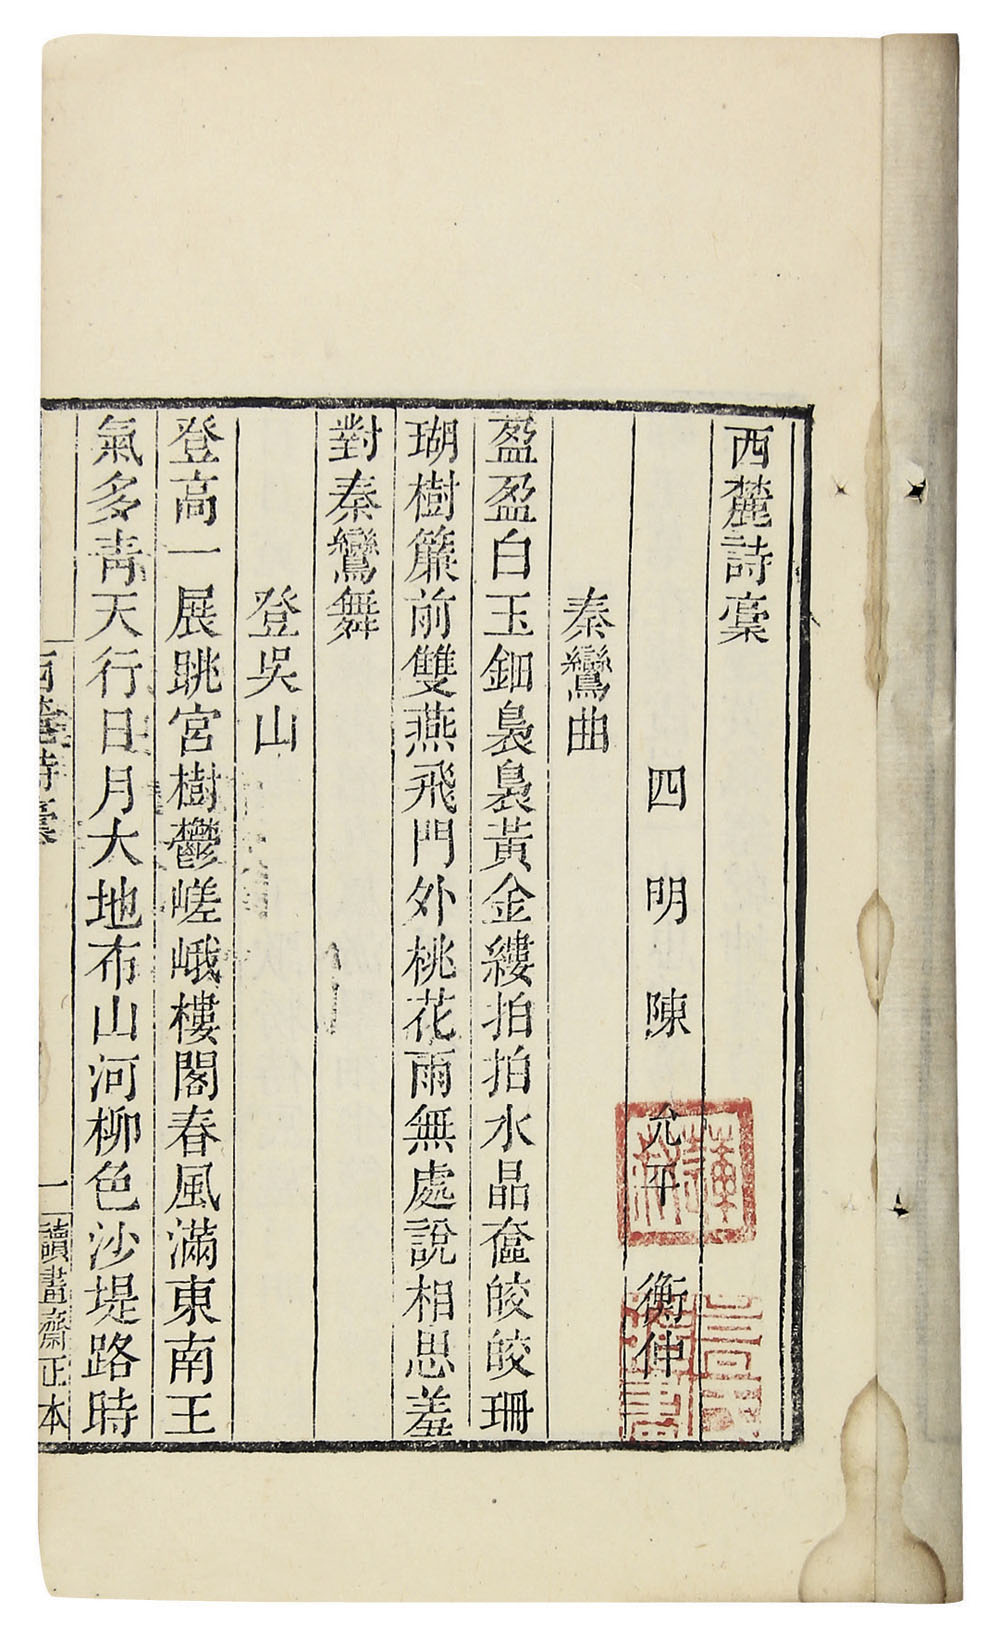 西麓詩稾
四明陳允平衡仲
秦鸞曲
盈盈白玉鈿裊裊黃金縷拍拍水晶奩皎皎珊
瑚樹簾前雙燕飛門外桃花雨無處說相思羞
對秦鸞舞
登吳山
登高一展眺宮樹鬱嵯峨樓閣春風滿東南王
氣多青天行日月大地布山河柳色沙堤路時
西麓詩稾
一
讀畫齋正本